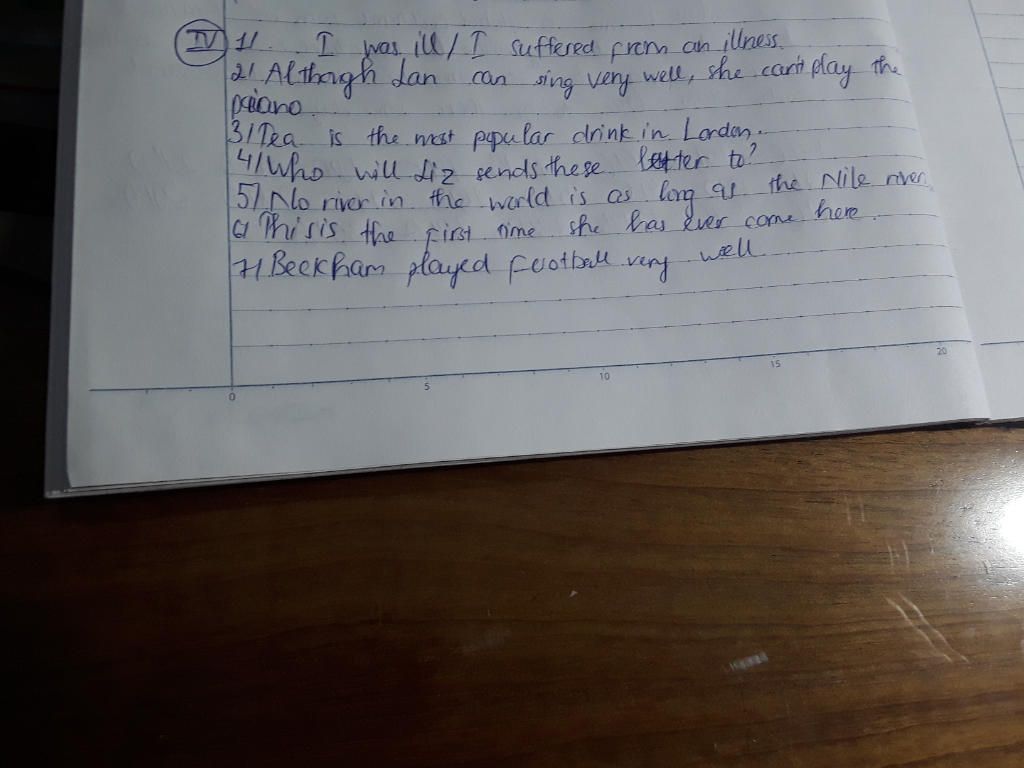 IV 1/. I was ill / I suffered from an illness.
2/ Although Lan can sing very well, she can't play the
piano.
3/ Tea is the most popular drink in London.
4/ Who will Liz sends these letter to?
5/ No river in the world is as long as the Nile river.
6/ This is the first time she has ever come here.
7/ Beckham played football very well.
0 5 10 15 20